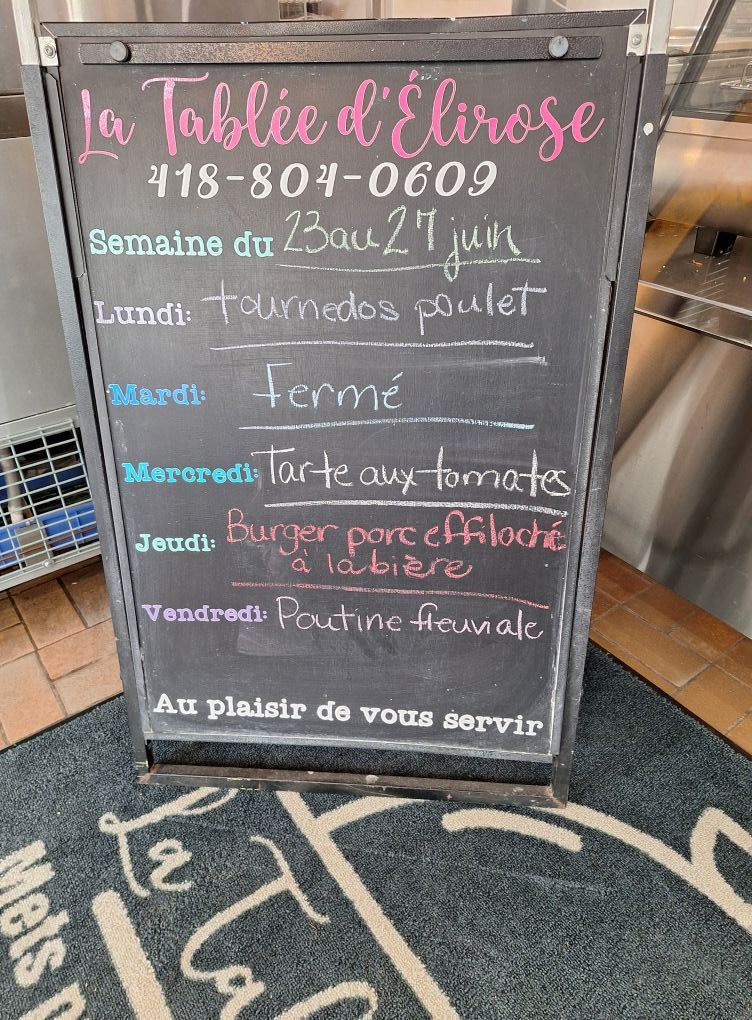 La Tablée d'Élirose
418-804-0609
Semaine du 23 au 27 juin
Lundi: tournedos poulet
Mardi: Fermé
Mercredi: Tarte aux tomates
Jeudi: Burger porc effiloché
à la bière
Vendredi: Poutine fleuviale
Au plaisir de vous servir
La Ta
Mets